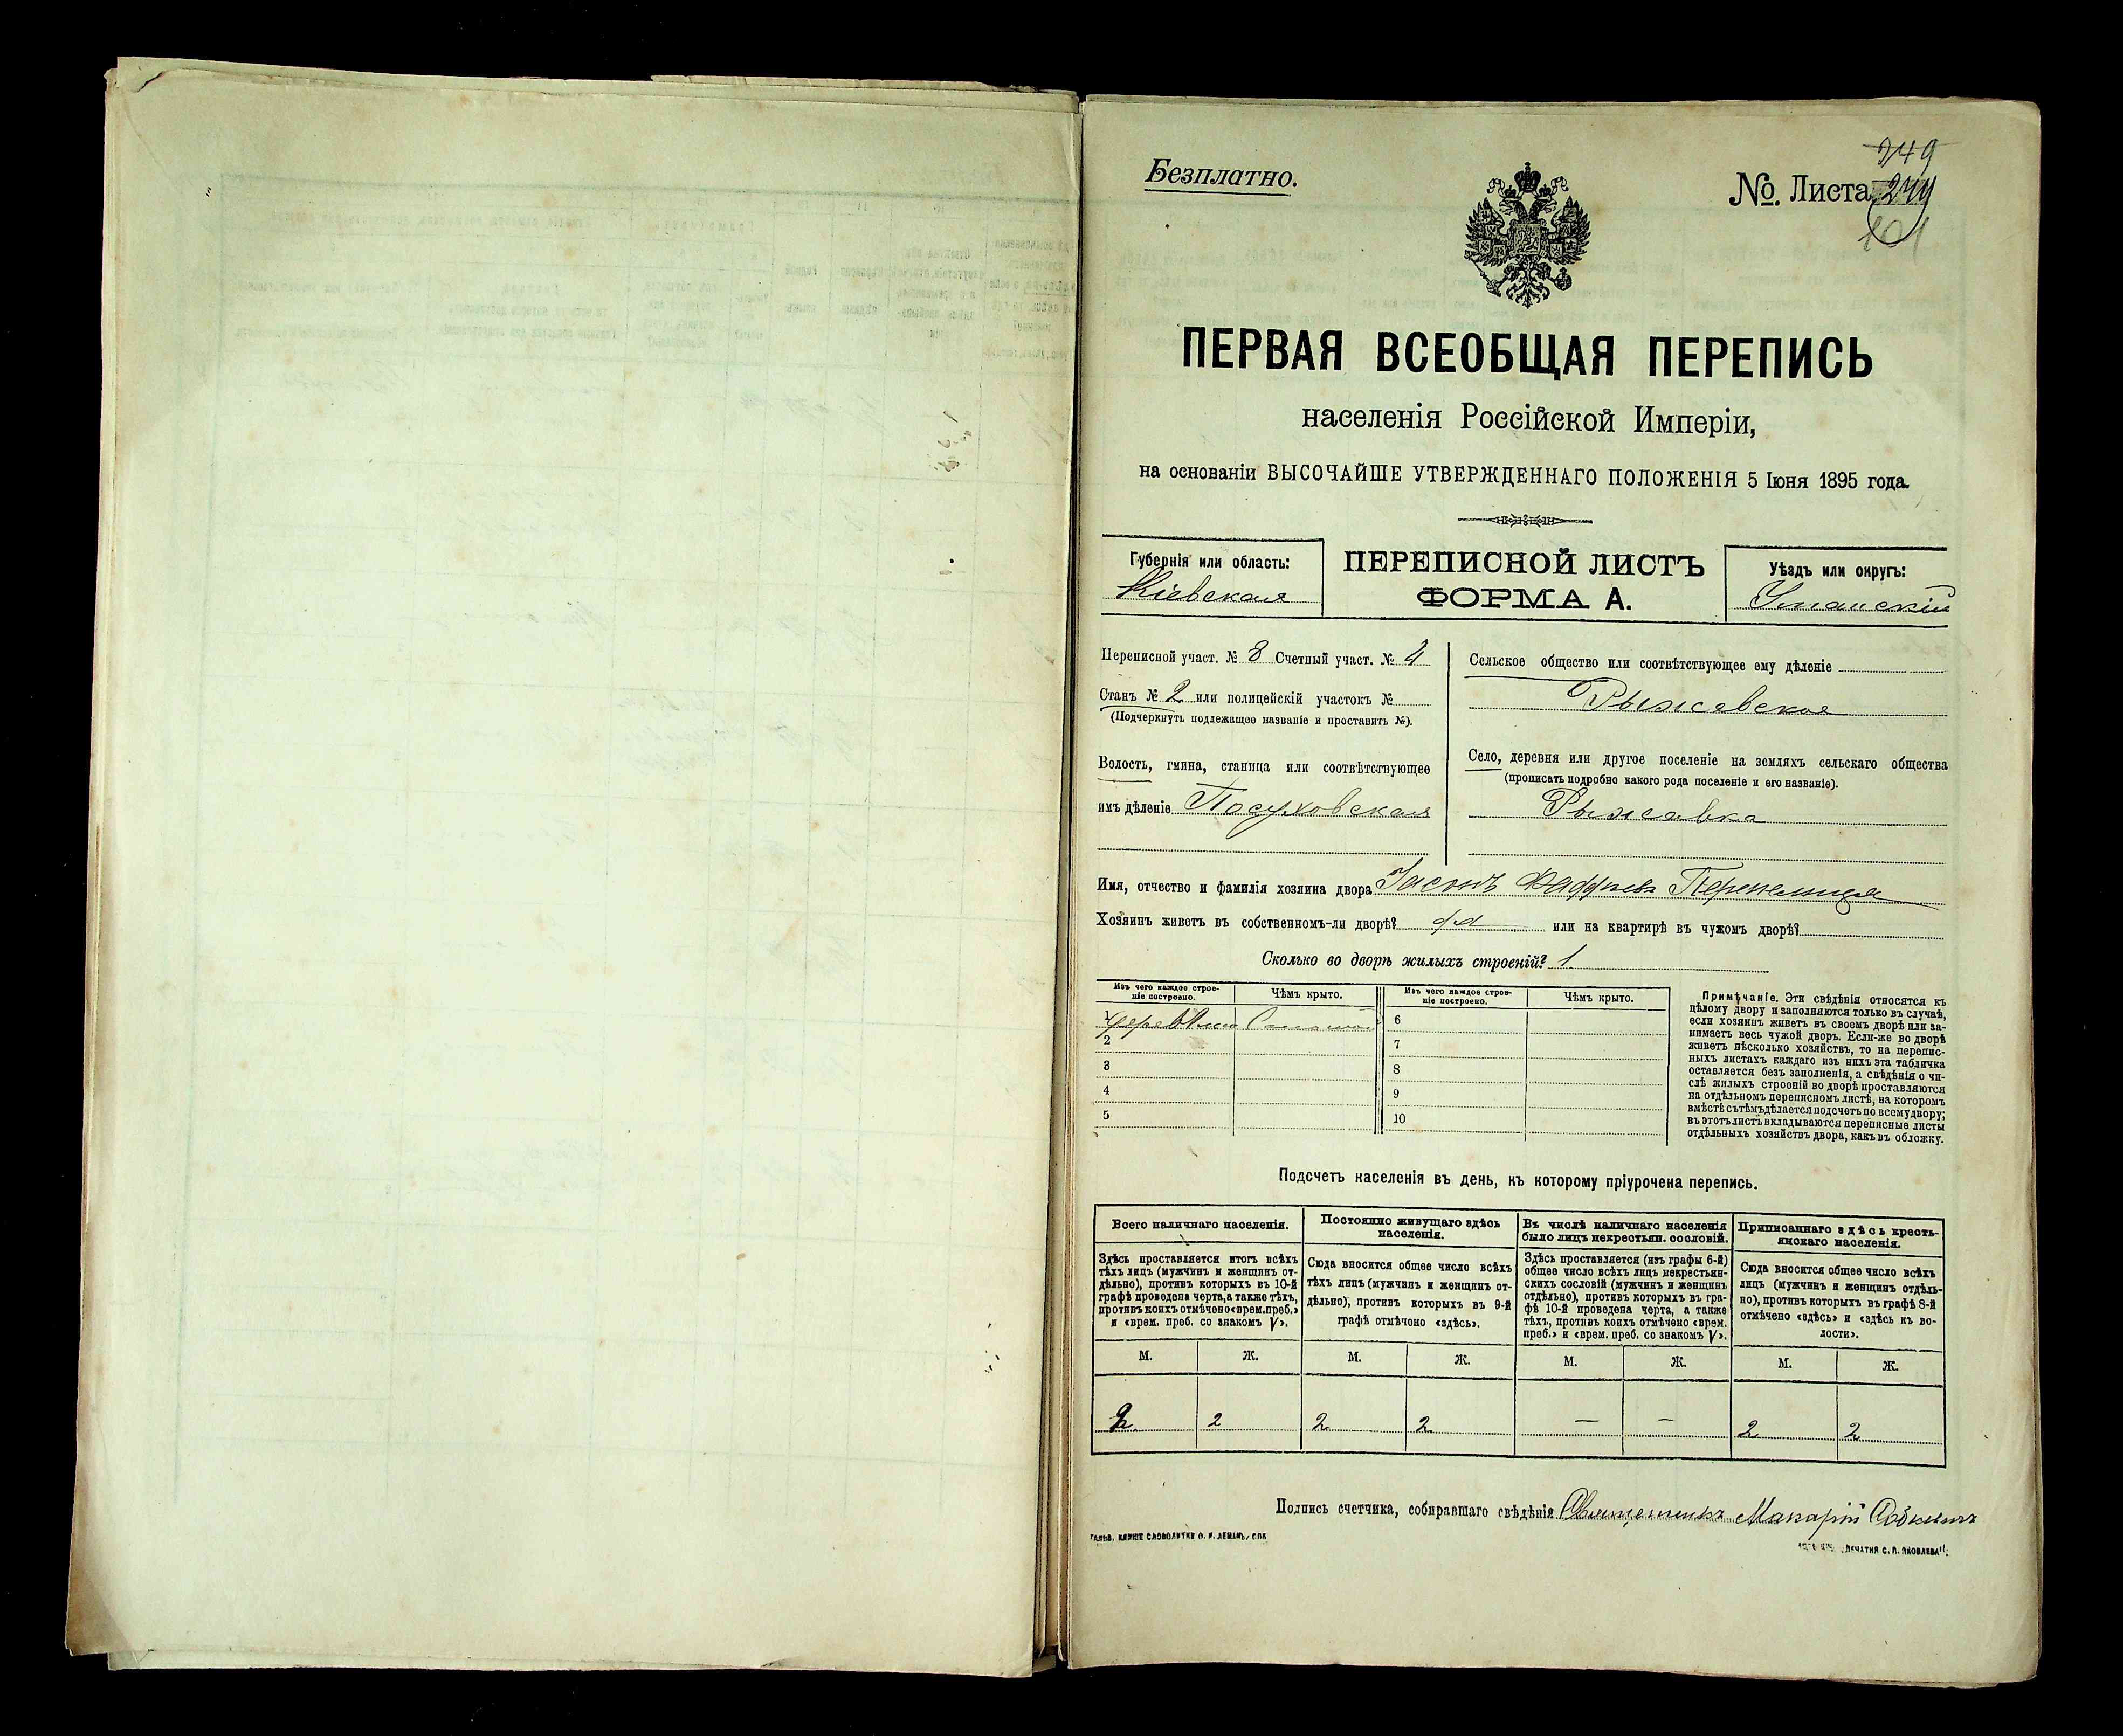 Безплатно.
249
№. Листа 244
101
ПЕРВАЯ ВСЕОБЩАЯ ПЕРЕПИСЬ
населенія Россійской Имперіи,
на основаніи ВЫСОЧАЙШЕ УТВЕРЖДЕННАГО ПОЛОЖЕНІЯ 5 Іюня 1895 года.
Губернія или область:
Кіевская
ПЕРЕПИСНОЙ ЛИСТЪ
ФОРМА А.
Уѣздъ или округъ:
Уманскій
Переписной участ. № 8 Счетный участ. № 4
Станъ № 2 или полицейскій участокъ №
(Подчеркнуть подлежащее названіе и проставить №).
Волость, гмина, станица или соотвѣтствующее
имъ дѣленіе Посуховская
Сельское общество или соотвѣтствующее ему дѣленіе
Рыжавское
Село, деревня или другое поселеніе на земляхъ сельскаго общества
(прописать подробно какого рода поселеніе и его названіе).
Рыжавка
Имя, отчество и фамилія хозяина двора Іасонъ Фаддѣевъ Перепелица
Хозяинъ живетъ въ собственномъ-ли дворѣ? да или на квартирѣ въ чужомъ дворѣ?
Сколько во дворѣ жилыхъ строеній? 1
Изъ чего каждое строе-
ніе построено.
Чѣмъ крыто.
Изъ чего каждое строе-
ніе построено.
Чѣмъ крыто.
1 Соломой 6
2 7
3 8
4 9
5 10
Примѣчаніе. Эти свѣдѣнія относятся къ
цѣлому двору и заполняются только въ случаѣ,
если хозяинъ живетъ въ своемъ дворѣ или за-
нимаетъ весь чужой дворъ. Если-же во дворѣ
живетъ нѣсколько хозяйствъ, то на перепис-
ныхъ листахъ каждаго изъ нихъ эта табличка
оставляется безъ заполненія, а свѣдѣнія о чи-
слѣ жилыхъ строеній во дворѣ проставляются
на отдѣльномъ переписномъ листѣ, на которомъ
вмѣстѣ съ тѣмъ дѣлается подсчетъ по всему двору;
въ этотъ листъ вкладываются переписные листы
отдѣльныхъ хозяйствъ двора, какъ въ обложку.
Подсчетъ населенія въ день, къ которому пріурочена перепись.
Всего наличнаго населенія.
Здѣсь проставляется итогъ всѣхъ
тѣхъ лицъ (мужчинъ и женщинъ от-
дѣльно), противъ которыхъ въ 10-й
графѣ проведена черта, а также тѣхъ,
противъ коихъ отмѣчено «врем. преб.»
и «врем. преб. со знакомъ V».
Постоянно живущаго здѣсь
населенія.
Сюда вносится общее число всѣхъ
тѣхъ лицъ (мужчинъ и женщинъ от-
дѣльно), противъ которыхъ въ 9-й
графѣ отмѣчено «здѣсь».
Въ числѣ наличнаго населенія
было лицъ некрестьян. сословій.
Здѣсь проставляется (изъ графы 6-й)
общее число всѣхъ лицъ некрестьян-
скихъ сословій (мужчинъ и женщинъ
отдѣльно), противъ которыхъ въ гра-
фѣ 10-й проведена черта, а также
тѣхъ, противъ коихъ отмѣчено «врем.
преб.» и «врем. преб. со знакомъ V».
Приписаннаго здѣсь кресть-
янскаго населенія.
Сюда вносится общее число всѣхъ
лицъ (мужчинъ и женщинъ отдѣль-
но), противъ которыхъ въ графѣ 8-й
отмѣчено «здѣсь» и «здѣсь къ во-
лости».
М. Ж. М. Ж. М. Ж. М. Ж.
2 2 2 2 — — 2 2
Подпись счетчика, собиравшаго свѣдѣнія Священникъ Макарій
ГАЛЬВ. КЛИШЕ СЛОВОЛИТНИ О. И. ЛЕМАНЪ, СПБ
ПЕЧАТНЯ С. П. ЯКОВЛЕВА